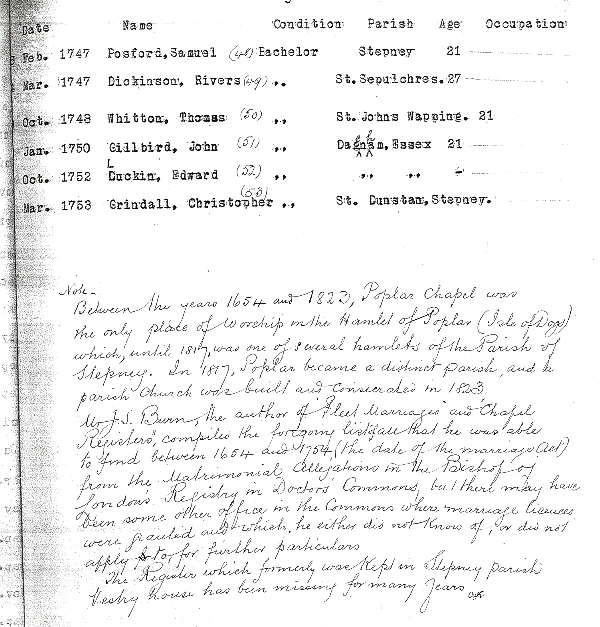 Date Name Condition Parish Age Occupation
Feb. 1747 Posford, Samuel (48) Bachelor Stepney 21
Mar. 1747 Dickinson, Rivers (49) ,, St. Sepulchres. 27
Oct. 1748 Whitton, Thomas (50) ,, St. Johns Wapping. 21
Jan. 1750 Gillbird, John (51) ,, Dagnham, Essex 21
Oct. 1752 Luckin, Edward (52) ,, ,, ,, -
Mar. 1753 Grindall, Christopher (53) ,, St. Dunstan, Stepney.
Note -
Between the years 1654 and 1823, Poplar Chapel was
the only place of Worship in the Hamlet of Poplar (Isle of Dogs)
which, until 1817, was one of several hamlets of the Parish of
Stepney. In 1817, Poplar became a distinct parish, and a
parish Church was built and consecrated in 1823
Mr J. S. Burn, the author of "Fleet Marriages" and "Chapel
Registers", compiled the foregoing list of all that he was able
to find between 1654 and 1754 (the date of the marriage Act)
from the Matrimonial Allegations in the Bishop of
London's Registry in Doctors' Commons, but there may have
been some other office in the Commons where marriage licences
were granted and which he either did not know of, or did not
apply to for further particulars
The Register which formerly was kept in Stepney parish
Vestry house has been missing for many years